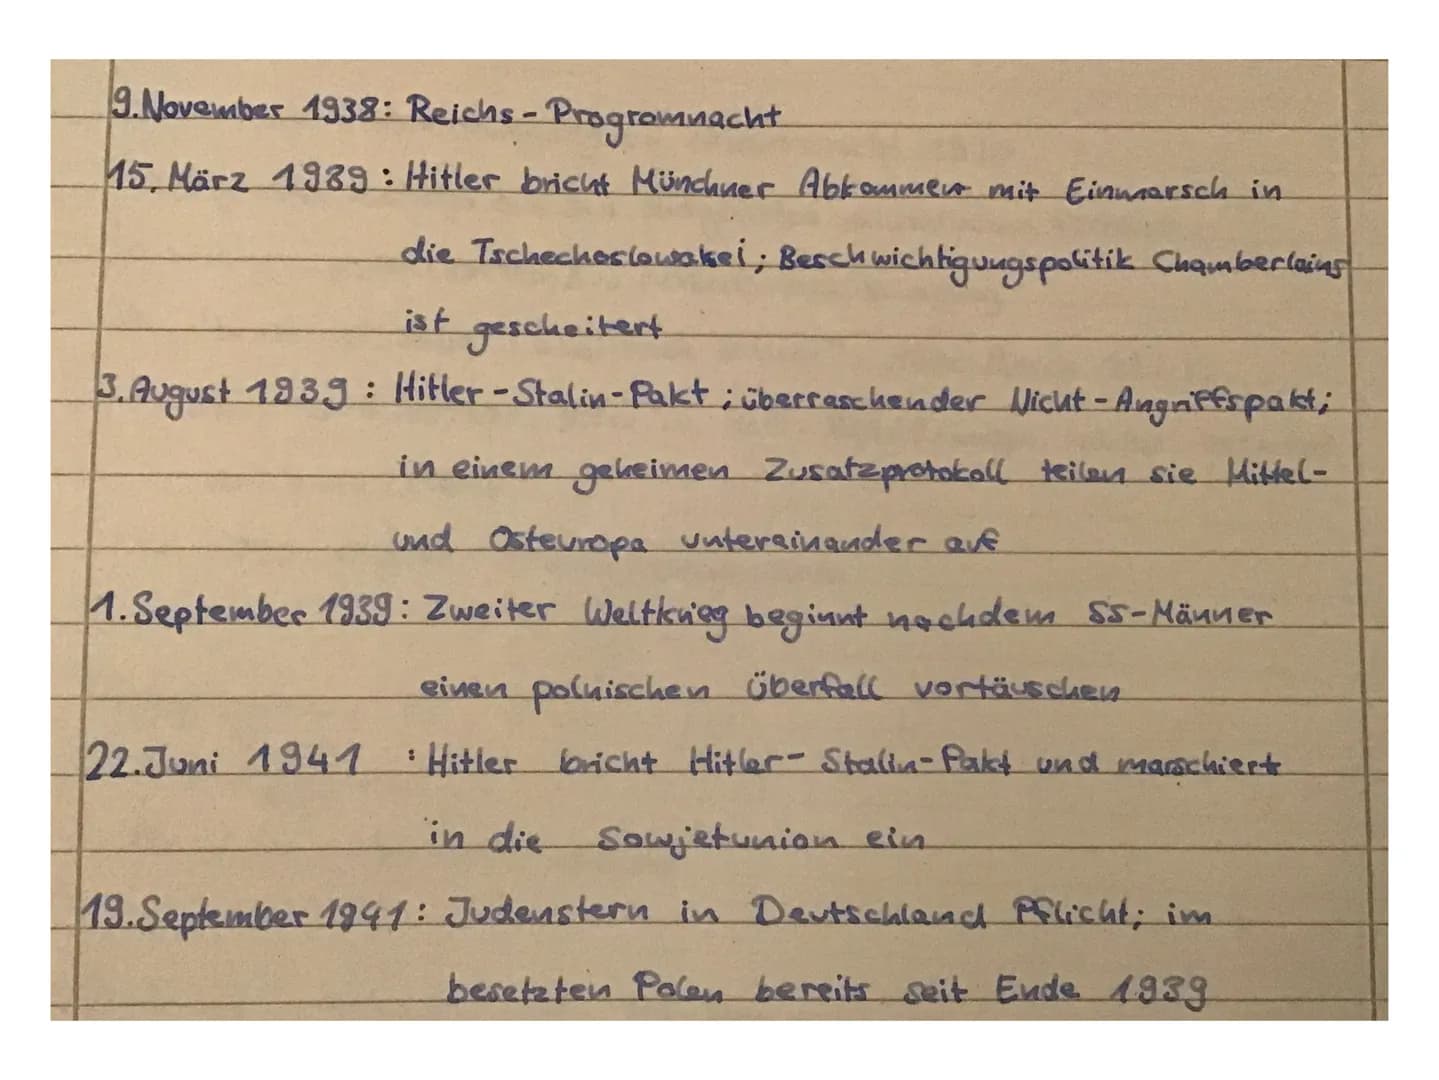 9. November 1938: Reichs-Programnacht
15. März 1939: Hitler bricht Münchner Abkommen mit Einmarsch in
die Tschechoslowakei; Beschwichtigungspolitik Chamberlains
ist gescheitert
3. August 1939: Hitler-Stalin-Pakt; überraschender Nicht-Angriffspakt;
in einem geheimen Zusatzprotokoll teilen sie Mittel-
und Osteuropa untereinander auf
1. September 1939: Zweiter Weltkrieg beginnt nachdem SS-Männer
einen polnischen Überfall vortäuschen
22. Juni 1941 : Hitler bricht Hitler-Stalin-Pakt und marschiert
in die Sowjetunion ein
19. September 1941: Judenstern in Deutschland Pflicht; im
besetzten Polen bereits seit Ende 1939